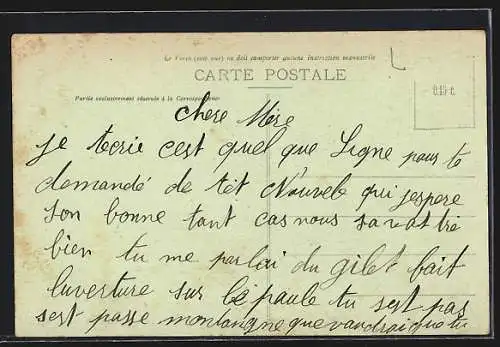 Le Verso (côté vue) ne doit comporter aucune instruction manuscrite
CARTE POSTALE
Partie exclusivement réservée à la Correspondance
0.15 c.
Chere Mère
je tecrie cest quel que Ligne pour te
demandé de tét Nouvele qui jespere
son bonne tant cas nous sa va tré
bien tu me parlai du gilet fait
luverture sur lé paule tu sest pas
sest passe montangne que vaudrai que tu